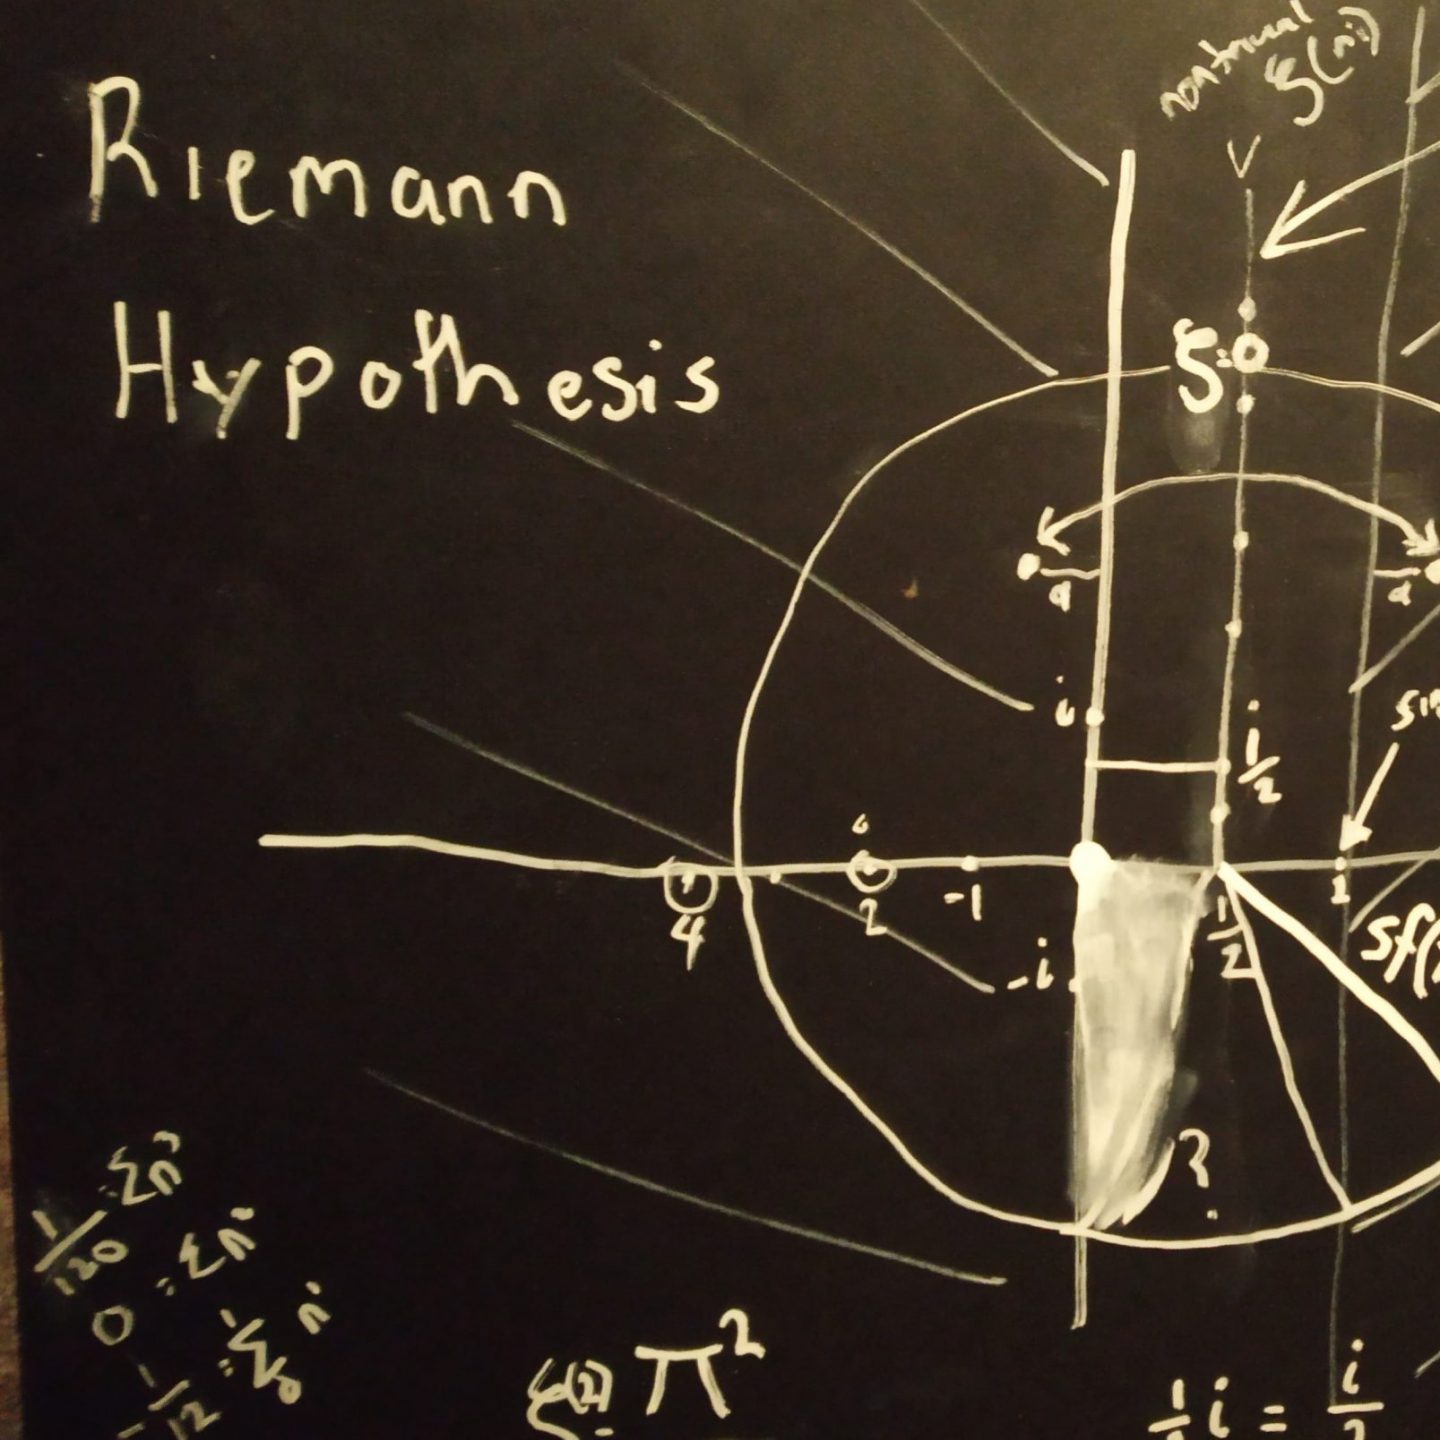 Riemann
Hypothesis
nontrivial
ζ(ni)
ζ=0
a
a
i
i/2
4
2
-1
1/2
1
-i
?
1/120 = Σn³
0 = Σn²
-1/12 = Σn¹
ζ(2) π²